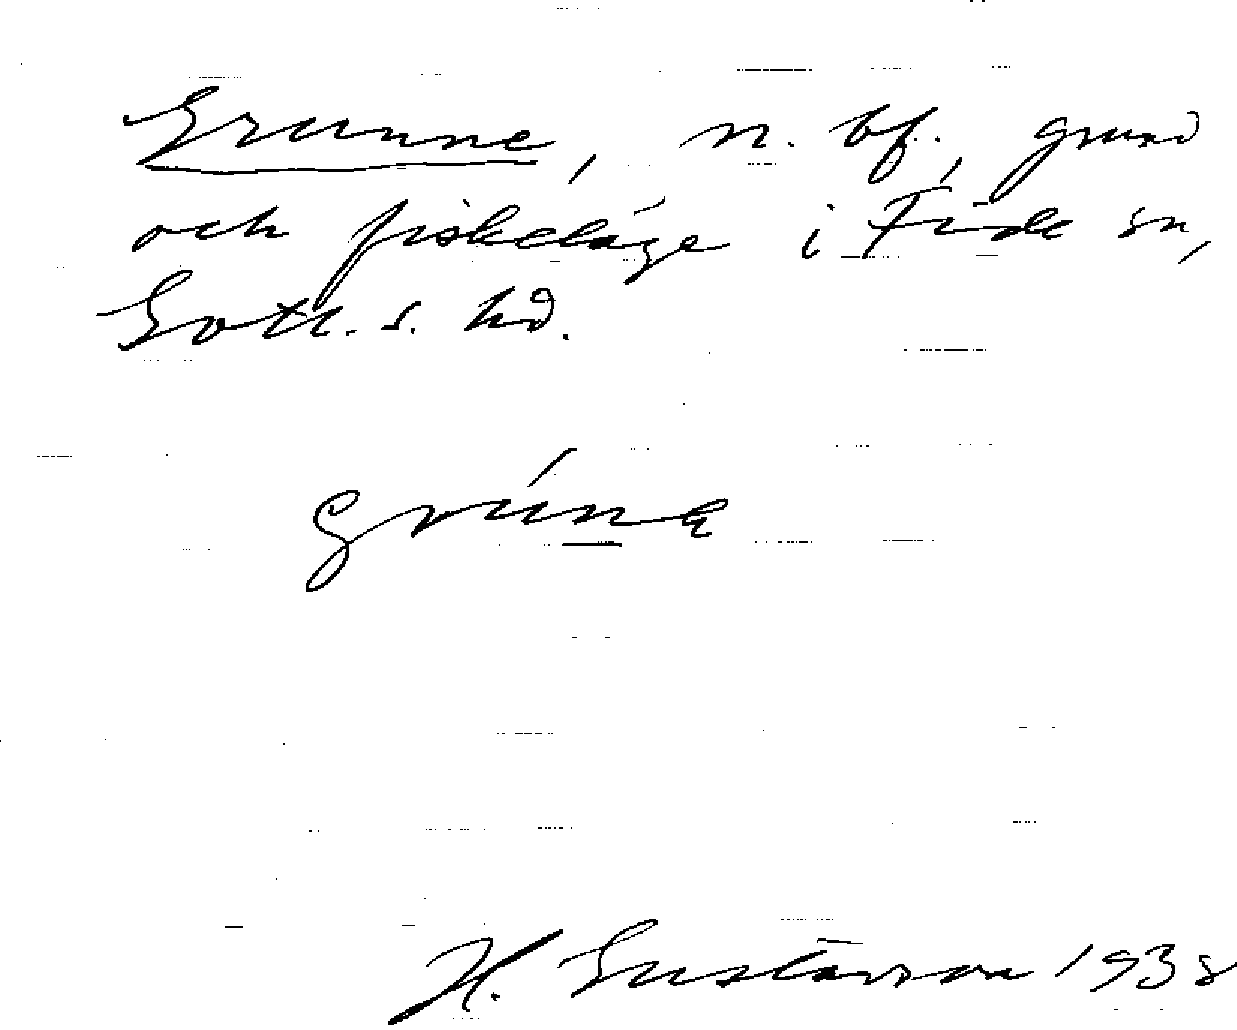 Grunne, n. bf., grund
och fiskeläge i Fide sn,
Gotl. s. hd.
grúnɛ
H. Gustavson 1938